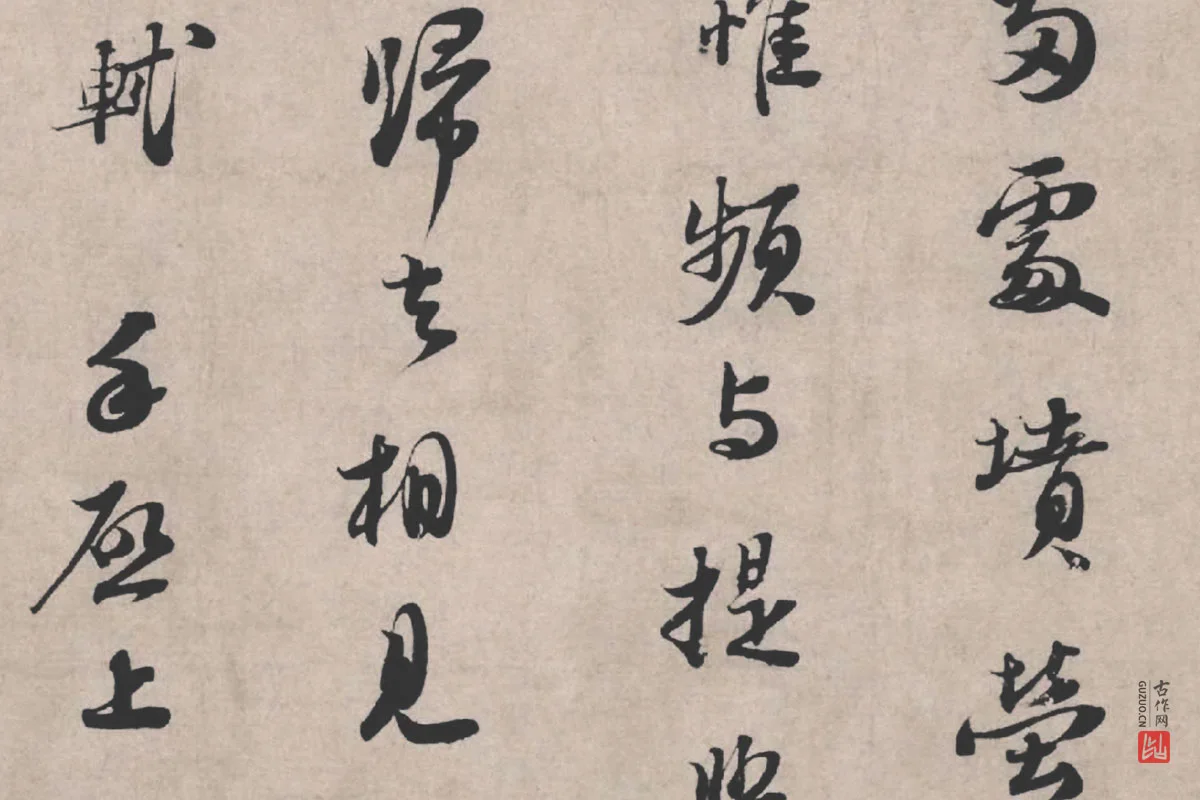 處墳塋
惟頻与提
歸去相見
軾手啓上
古作网
GUZUO.CN